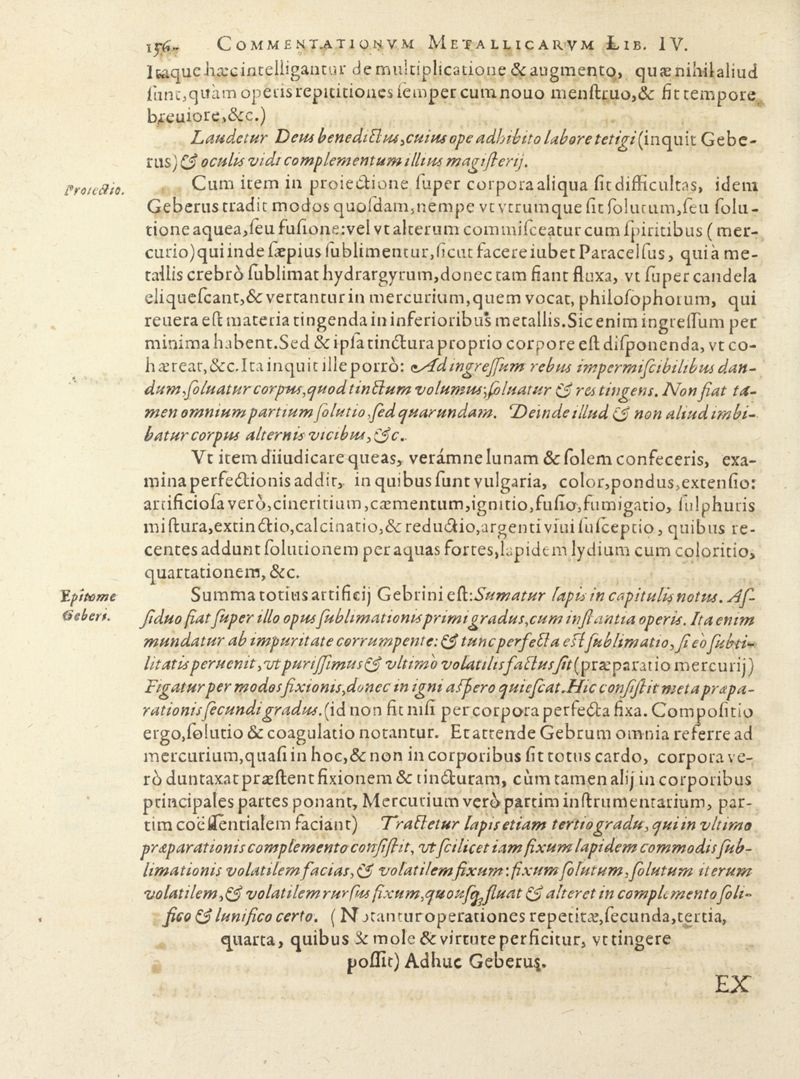 156. COMMENTATIONVM METALLICARVM LIB. IV.
Itaque hæc intelligantur de multiplicatione & augmento, quæ nihil aliud
sunt, quàm operis repititiones semper cum nouo menstruo, & fit tempore
breuiore, &c.)
Laudetur Deus benedictus, cuius ope adhibito labore tetigi (inquit Gebe-
rus) & oculis vidi complementum illius magisterij.
Proiectio.
Cum item in proiectione super corpora aliqua sit difficultas, idem
Geberus tradit modos quosdam, nempe vt vtrumque sit solutum, seu solu-
tione aquea, seu fusione: vel vt alterum commisceatur cum spiritibus (mer-
curio) qui inde sæpius sublimentur, sicut facere iubet Paracelsus, quià me-
tallis crebrò sublimat hydrargyrum, donec tam fiant fluxa, vt super candela
eliquescant, & vertantur in mercurium, quem vocat, philosophorum, qui
reuera est materia tingenda in inferioribus metallis. Sic enim ingressum per
minima habent. Sed & ipsa tinctura proprio corpore est disponenda, vt co-
hæreat, &c. Ita inquit ille porrò: Ad ingressum rebus impermiscibilibus dan-
dum, soluatur corpus, quod tinctum volumus; soluatur & res tingens. Non fiat ta-
men omnium partium solutio, sed quarundam. Deinde illud & non aliud imbi-
batur corpus alternis vicibus, &c.
Vt item diiudicare queas, verámne lunam & solem confeceris, exa-
mina perfectionis addit, in quibus sunt vulgaria, color, pondus, extensio:
artificiosa verò, cineritium, cæmentum, ignitio, fusio, fumigatio, sulphuris
mistura, extinctio, calcinatio, & reductio, argenti viui susceptio, quibus re-
centes addunt solutionem per aquas fortes, lapidem lydium cum coloritio,
quartationem, &c.
Epitome
Geberi.
Summa totius artificij Gebrini est: Sumatur lapis in capitulis notus. As-
siduo fiat super illo opus sublimationis primi gradus, cum instantia operis. Ita enim
mundatur ab impuritate corrumpente: & tunc perfecta est sublimatio, si eò subti-
litatis peruenit, vt purissimus & vltimò volatilis factus sit (præparatio mercurij)
Figatur per modos fixionis, donec in igni aspero quiescat. Hic consistit meta præpa-
rationis secundi gradus. (id non fit nisi per corpora perfecta fixa. Compositio
ergo, solutio & coagulatio notantur. Et attende Gebrum omnia referre ad
mercurium, quasi in hoc, & non in corporibus sit totus cardo, corpora ve-
rò duntaxat præstent fixionem & tincturam, cùm tamen alij in corporibus
principales partes ponant, Mercurium verò partim instrumentarium, par-
tim coëssentialem faciant) Tractetur lapis etiam tertio gradu, qui in vltimo
præparationis complemento consistit, vt scilicet iam fixum lapidem commodis sub-
limationis volatilem facias, & volatilem fixum: fixum solutum, solutum iterum
volatilem, & volatilem rursus fixum, quousq; fluat & alteret in complemento soli-
fico & lunifico certo. (Notantur operationes repetitæ, secunda, tertia,
quarta, quibus & mole & virtute perficitur, vt tingere
possit) Adhuc Geberus.
EX